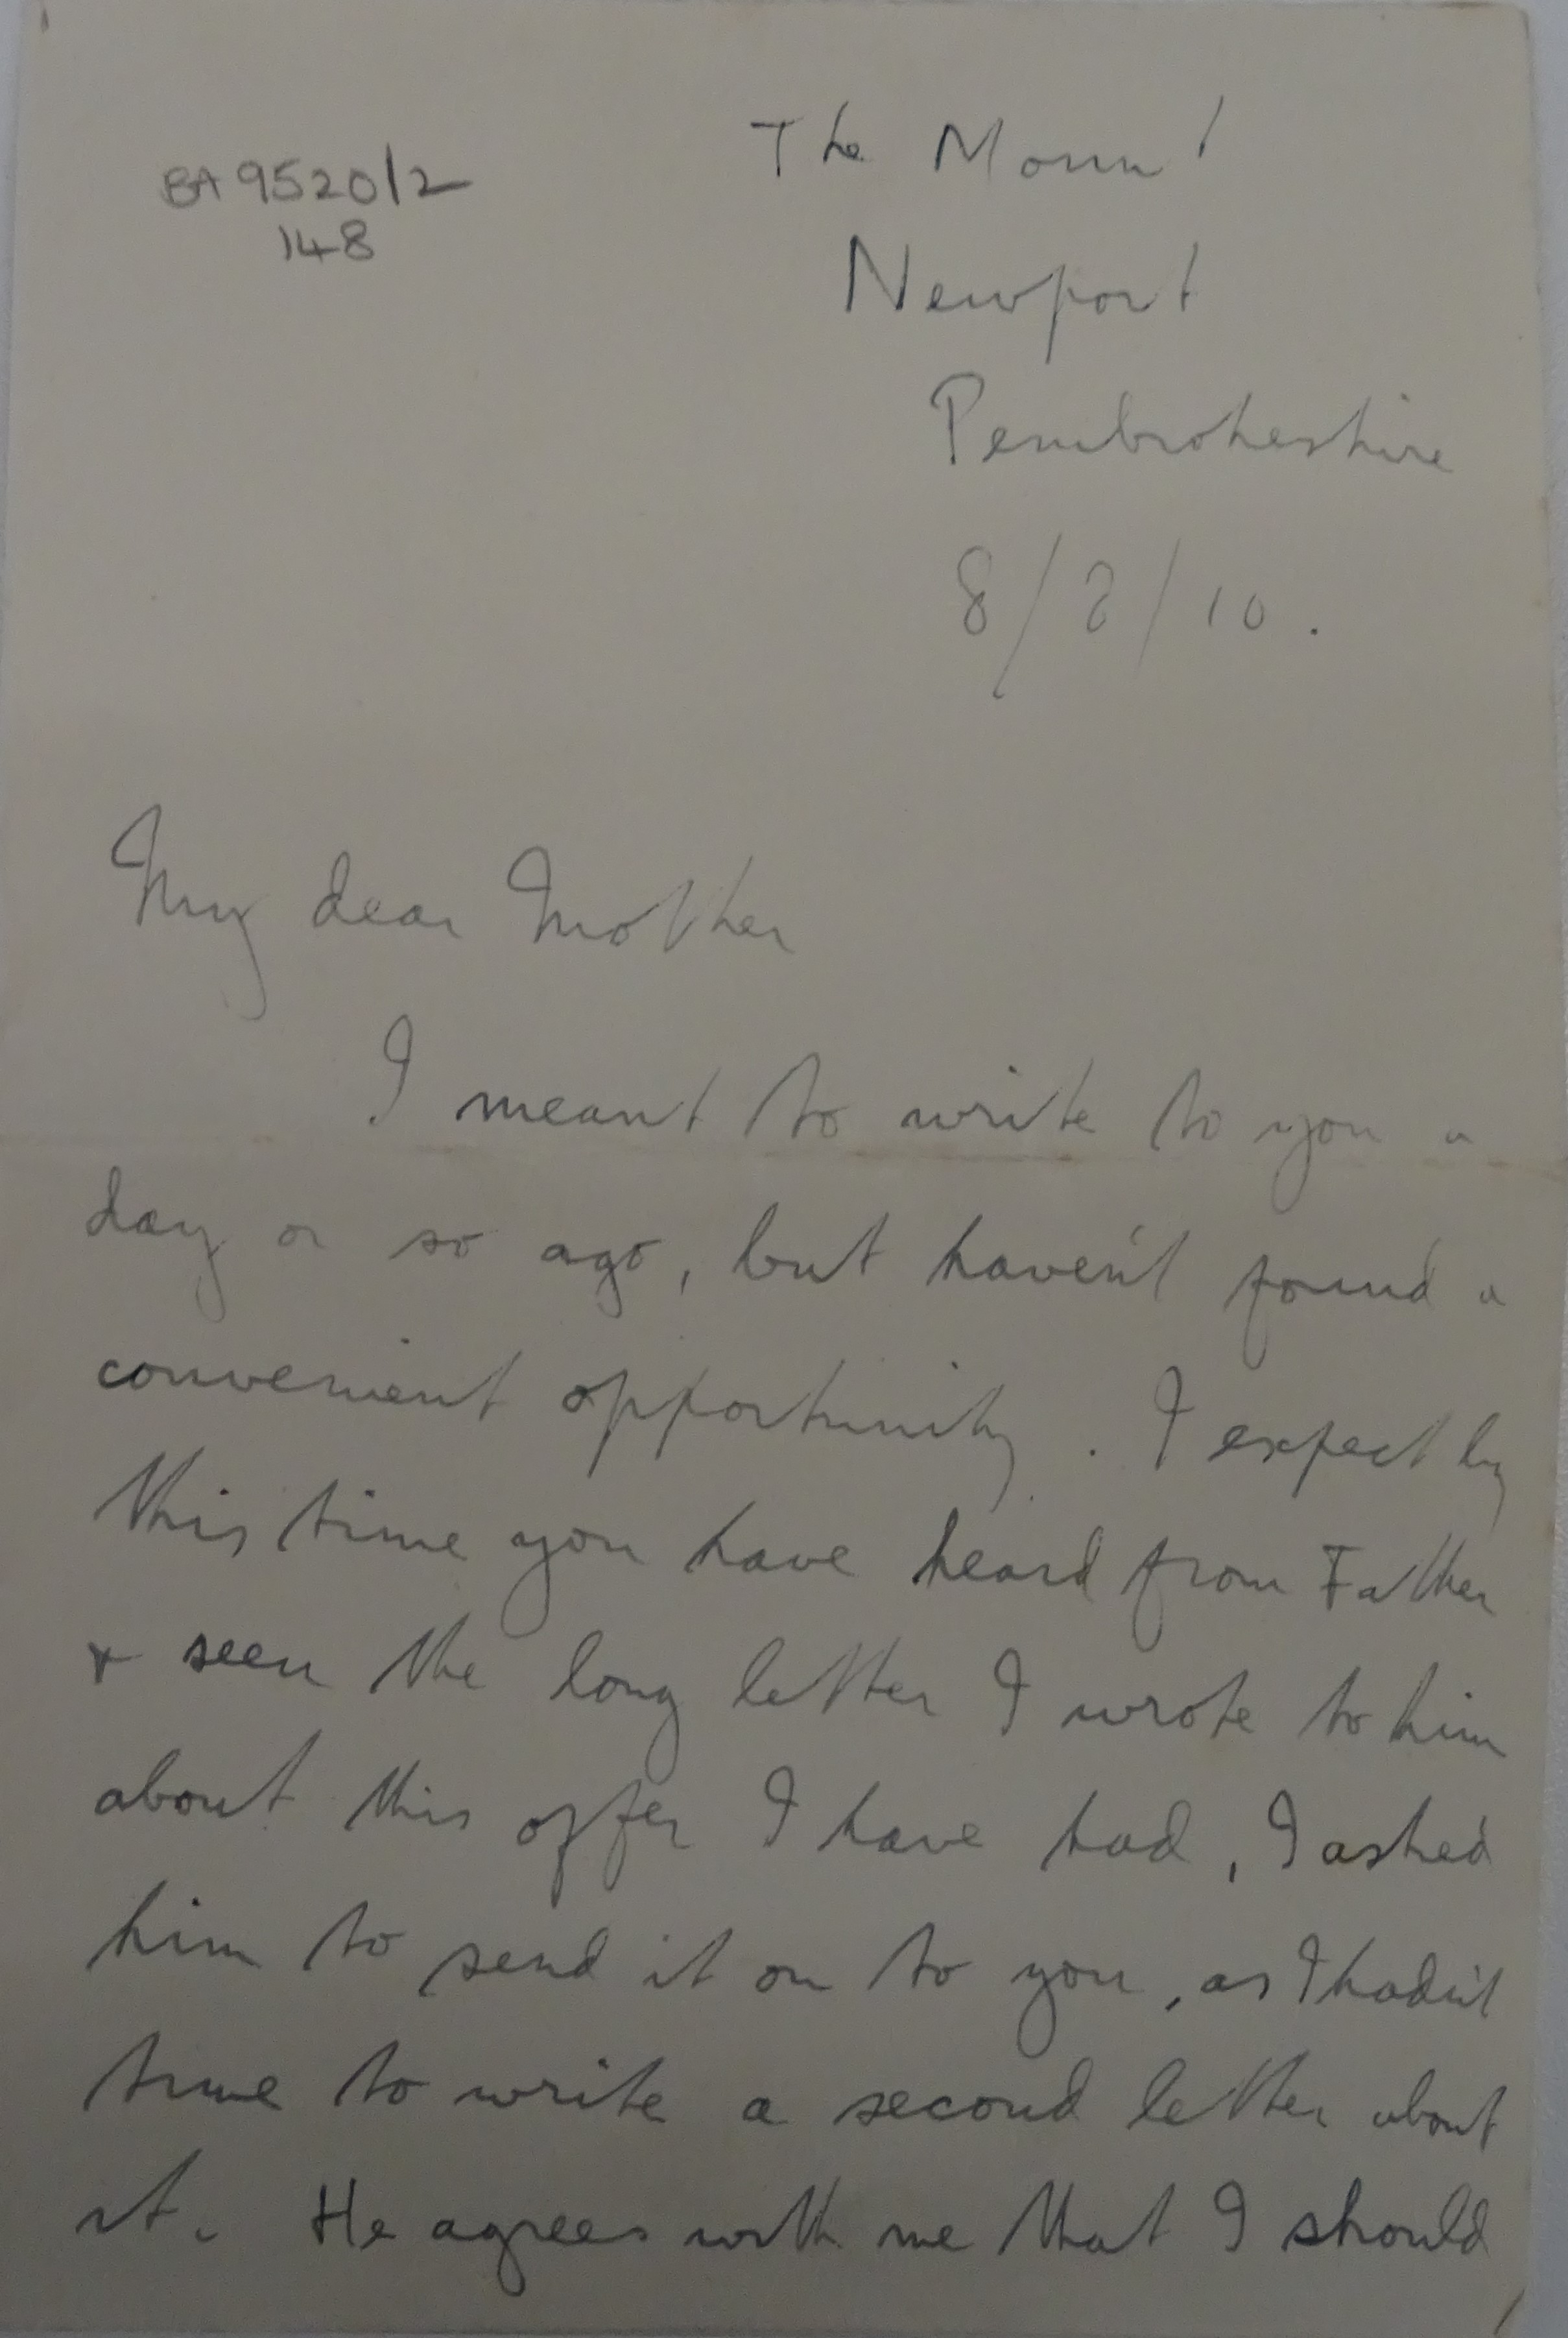 The Mount
BA 9520/2
148
Newport
Pembrokeshire
8/8/10.
My dear Mother
I meant to write to you a
day or so ago, but haven't found a
convenient opportunity. I expect by
this time you have heard from Father
& seen the long letter I wrote to him
about this offer I have had, I asked
him to send it on to you, as I hadn't
time to write a second letter about
it. He agrees with me that I should